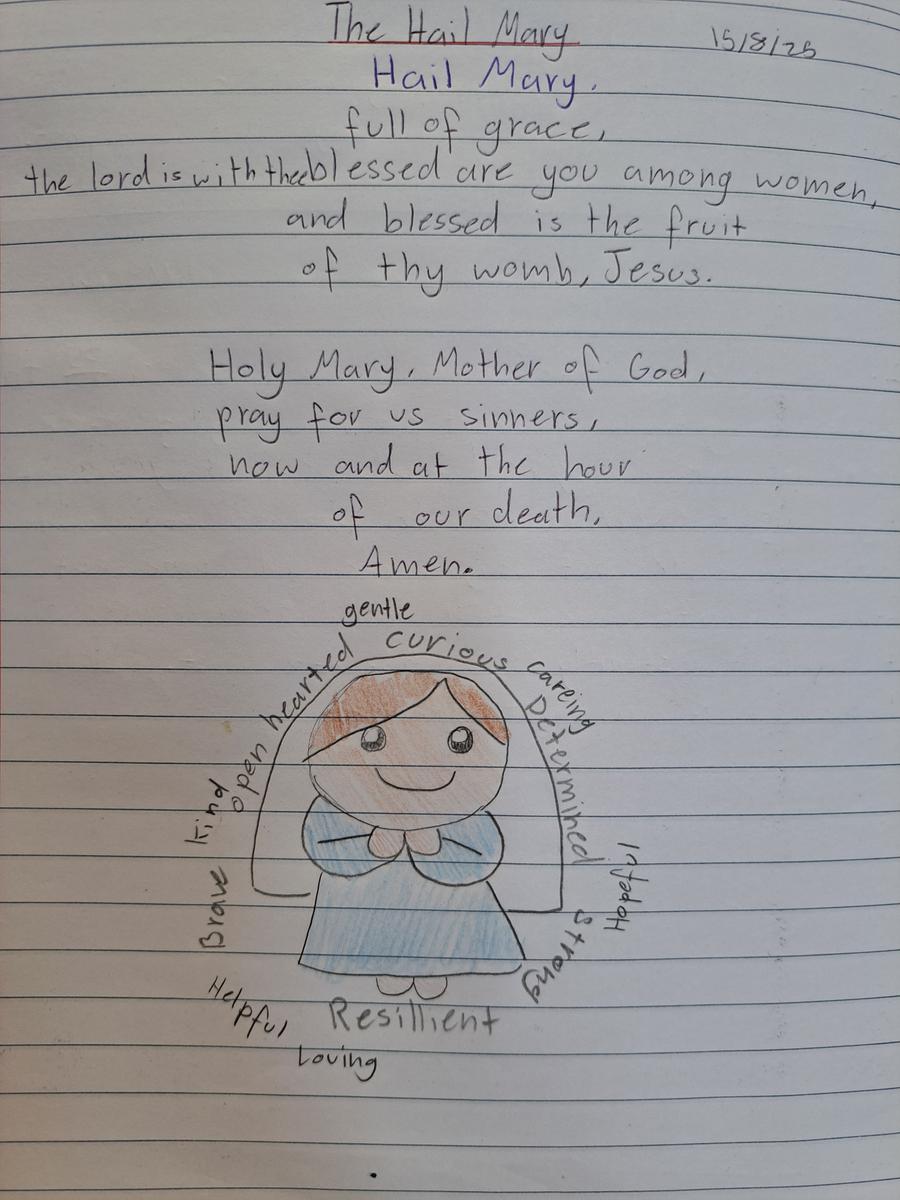 The Hail Mary
15/8/25
Hail Mary.
full of grace,
the lord is with thee blessed are you among women,
and blessed is the fruit
of thy womb, Jesus.
Holy Mary, Mother of God,
pray for us sinners,
now and at the hour
of our death,
Amen.
gentle
curious
open hearted
careing
Determined
kind
Brave
Hopeful
Strong
Helpful
Resillient
Loving